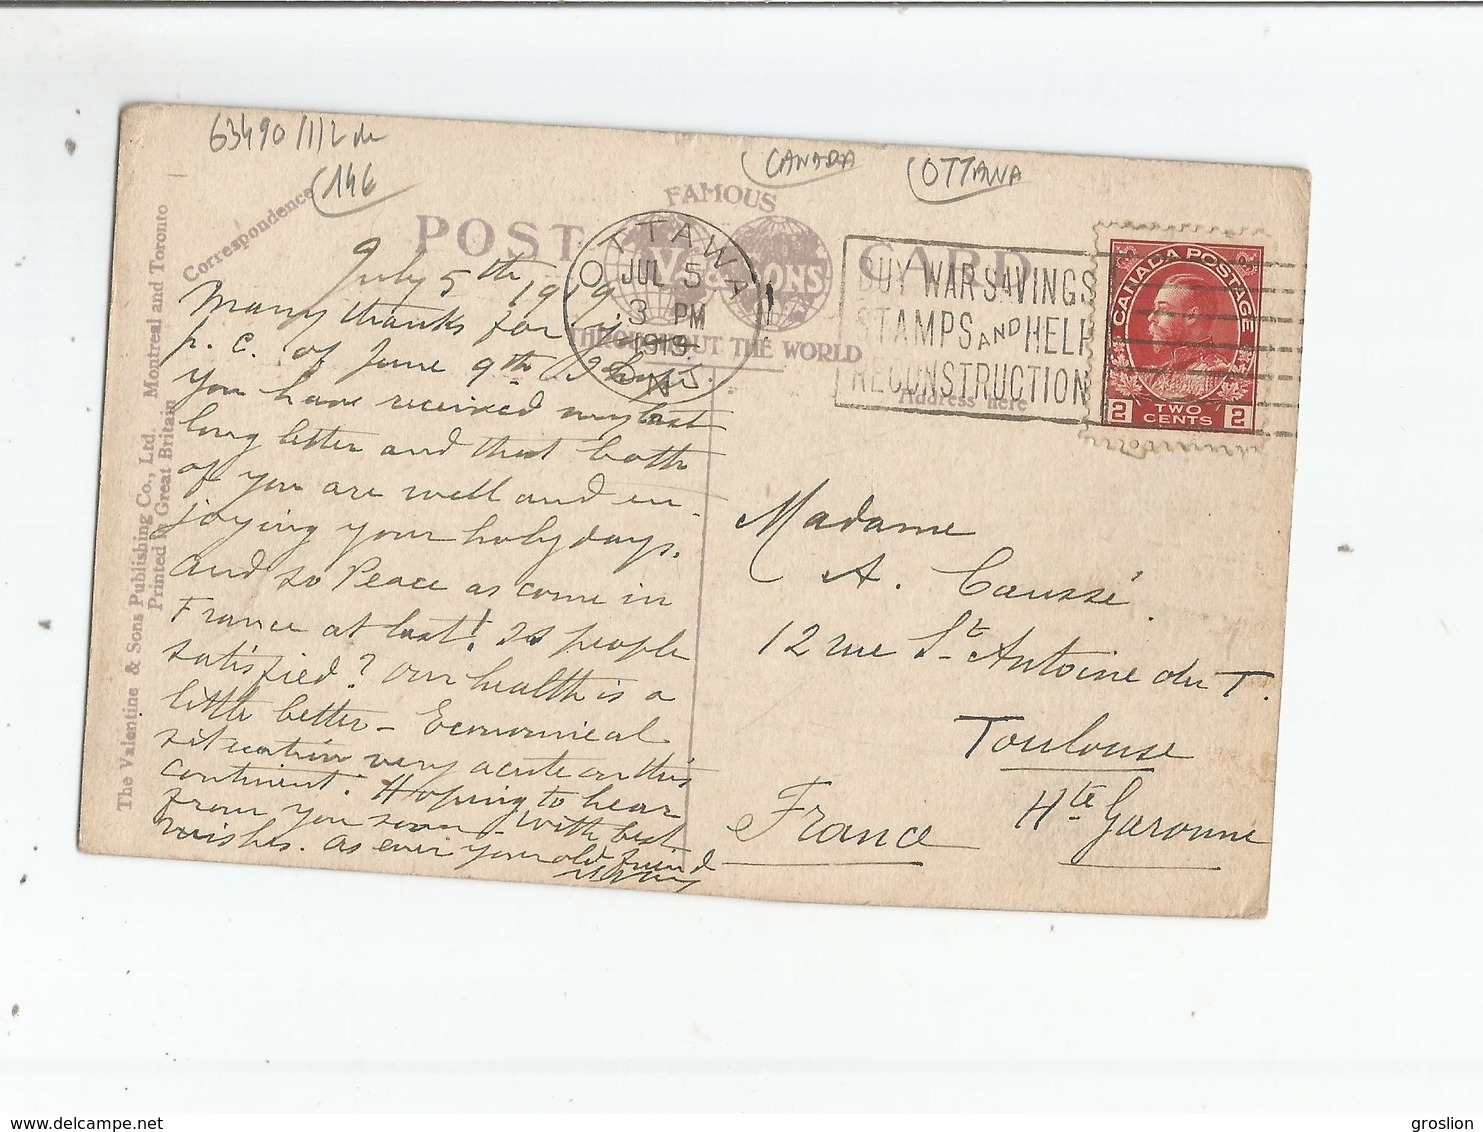 63490/1/2 de
146
CANADA
OTTAWA
Correspondence
POST CARD
FAMOUS
V. & SONS
THROUGHOUT THE WORLD
Address here
OTTAWA
JUL 5
3 PM
1919
BUY WAR SAVINGS
STAMPS AND HELP
RECONSTRUCTION
CANADA POSTAGE
2 TWO CENTS 2
The Valentine & Sons Publishing Co., Ltd. Montreal and Toronto
Printed in Great Britain
July 5th 1919
Many thanks for
p. c. of June 9th I hope
you have received my last
long letter and that both
of you are well and en-
joying your holydays.
And so Peace as come in
France at last! Is people
satisfied? Our health is a
little better – Economical
situation very acute on this
continent. Hoping to hear
from you soon – With best
wishes. As ever your old friend
Madame
A. Caussé
12 rue St. Antoine du T.
Toulouse
Hte Garonne
France
groslion